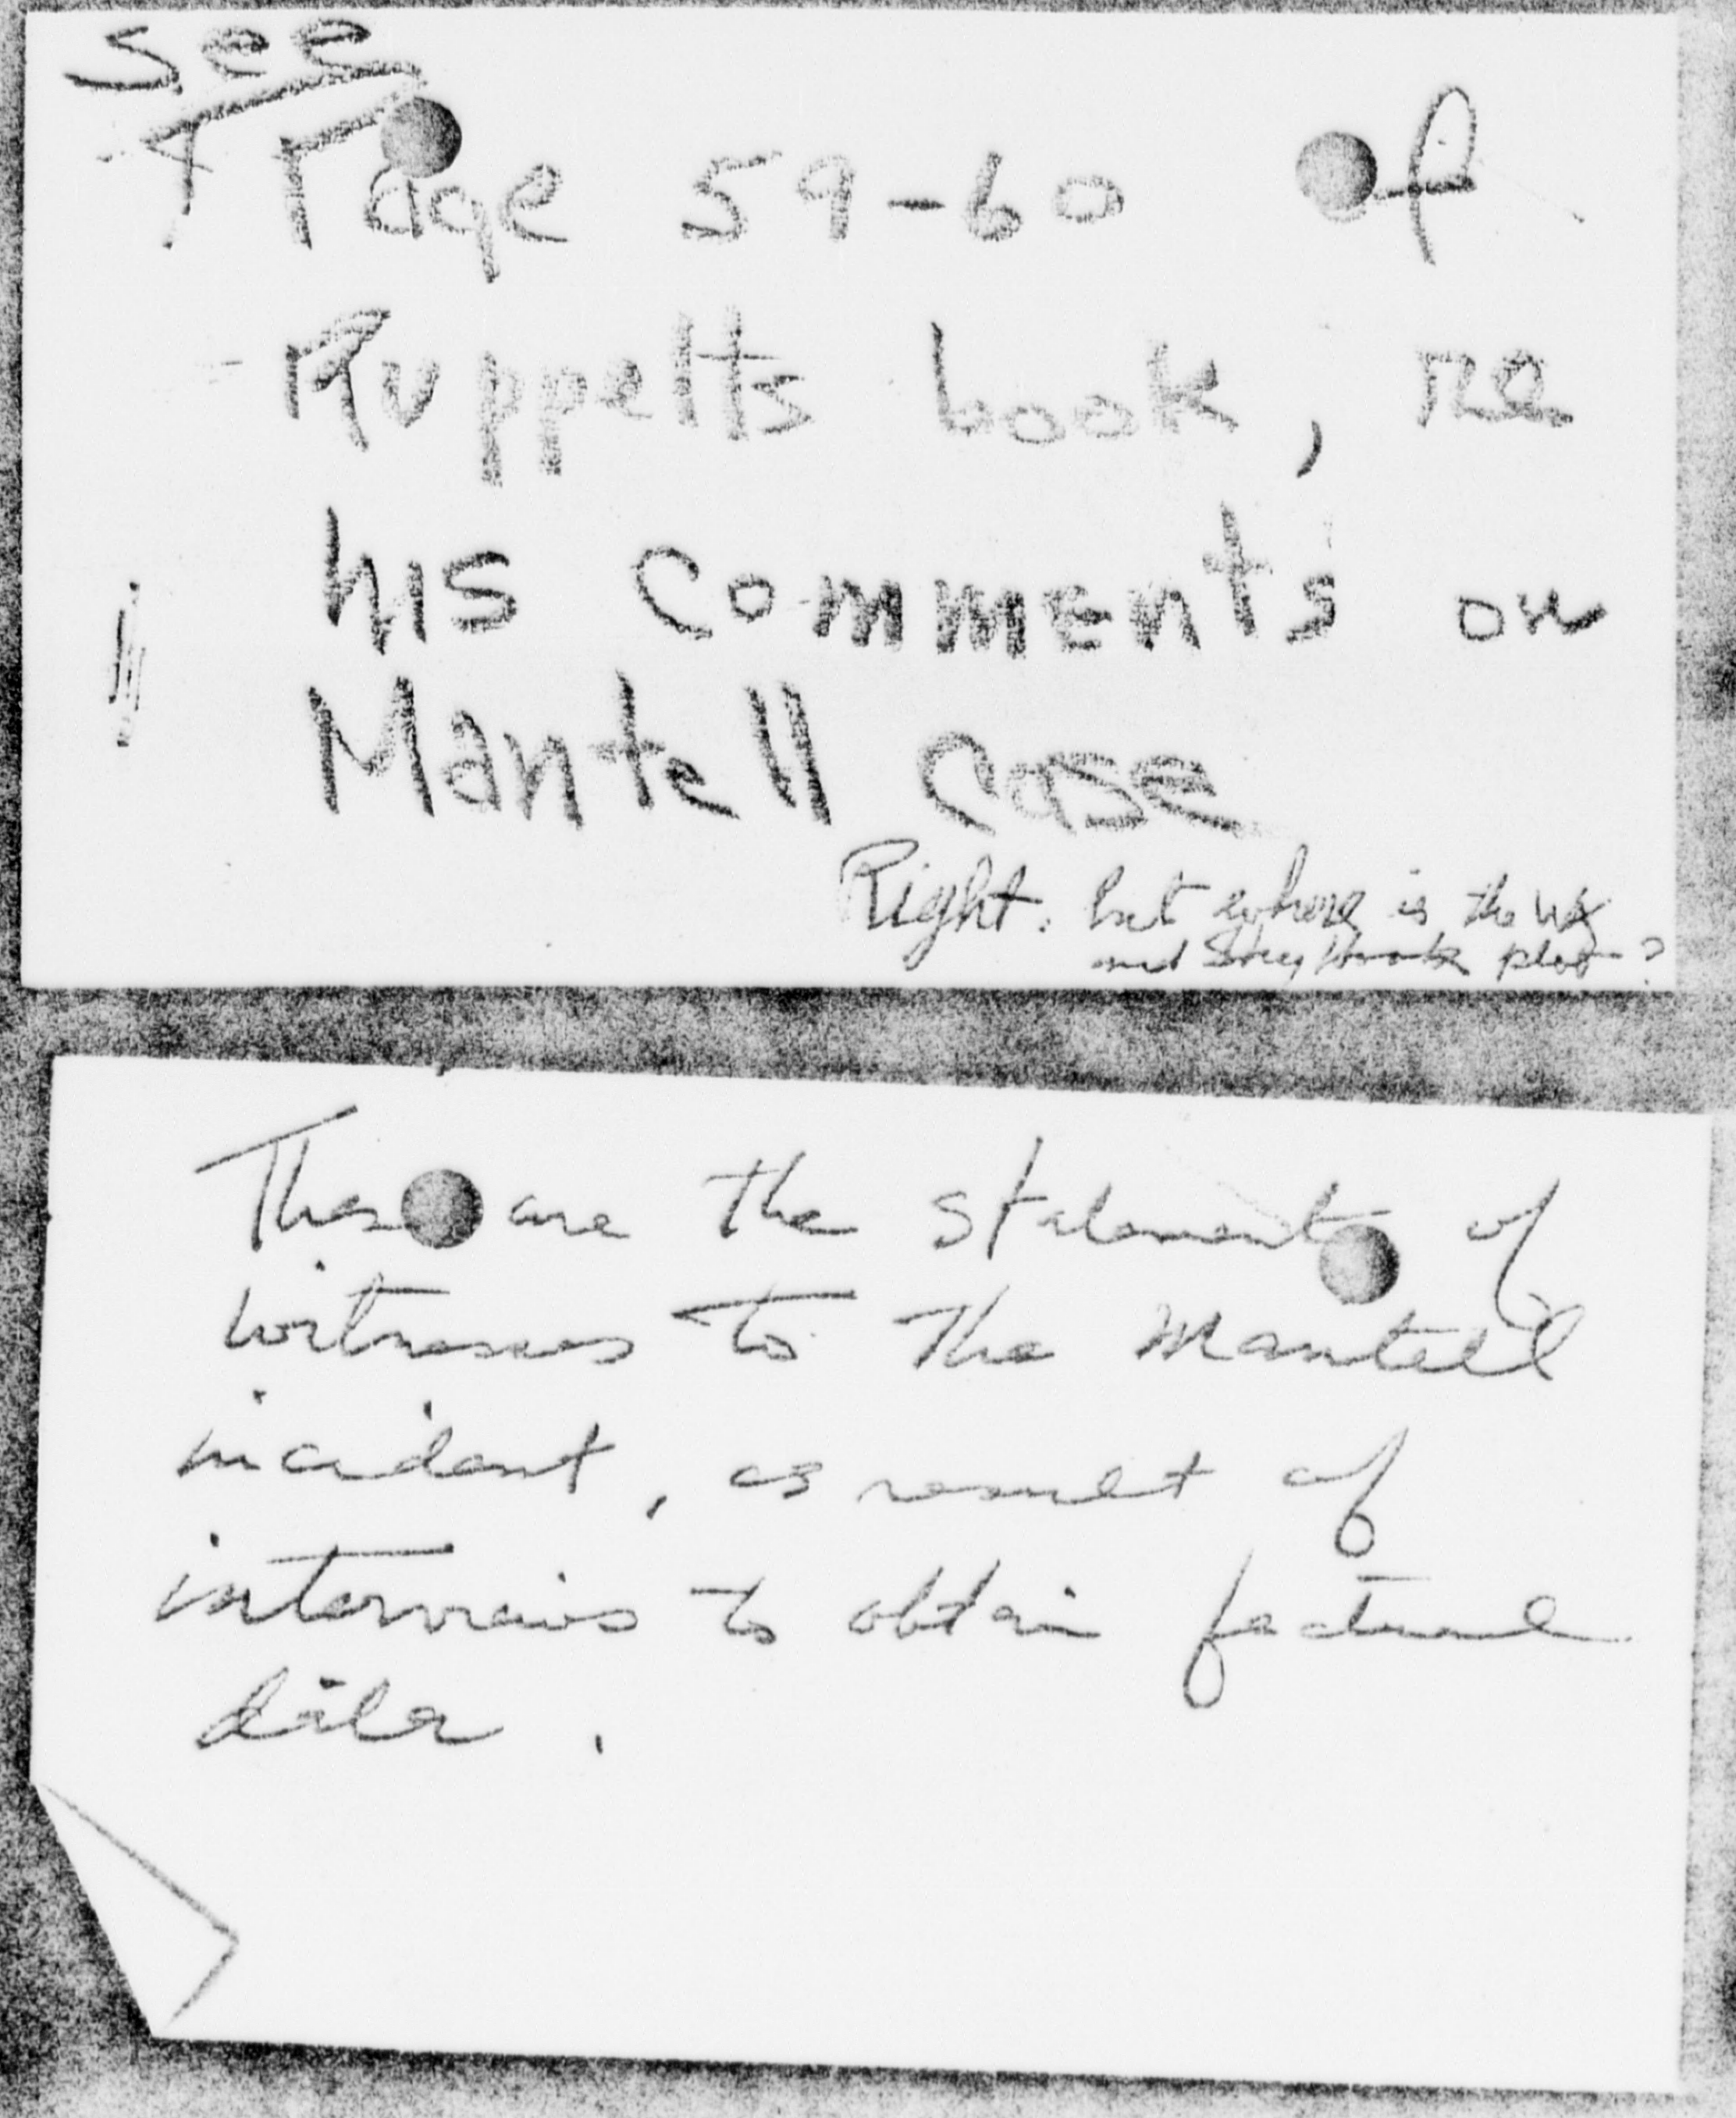 See
Page 59-60 of
Ruppelts book, re
his comments on
Mantell case
Right. but where is the Wx
and Skyhook plot?
These are the statements of
witnesses to the Mantell
incident, as result of
interviews to obtain factual
data.